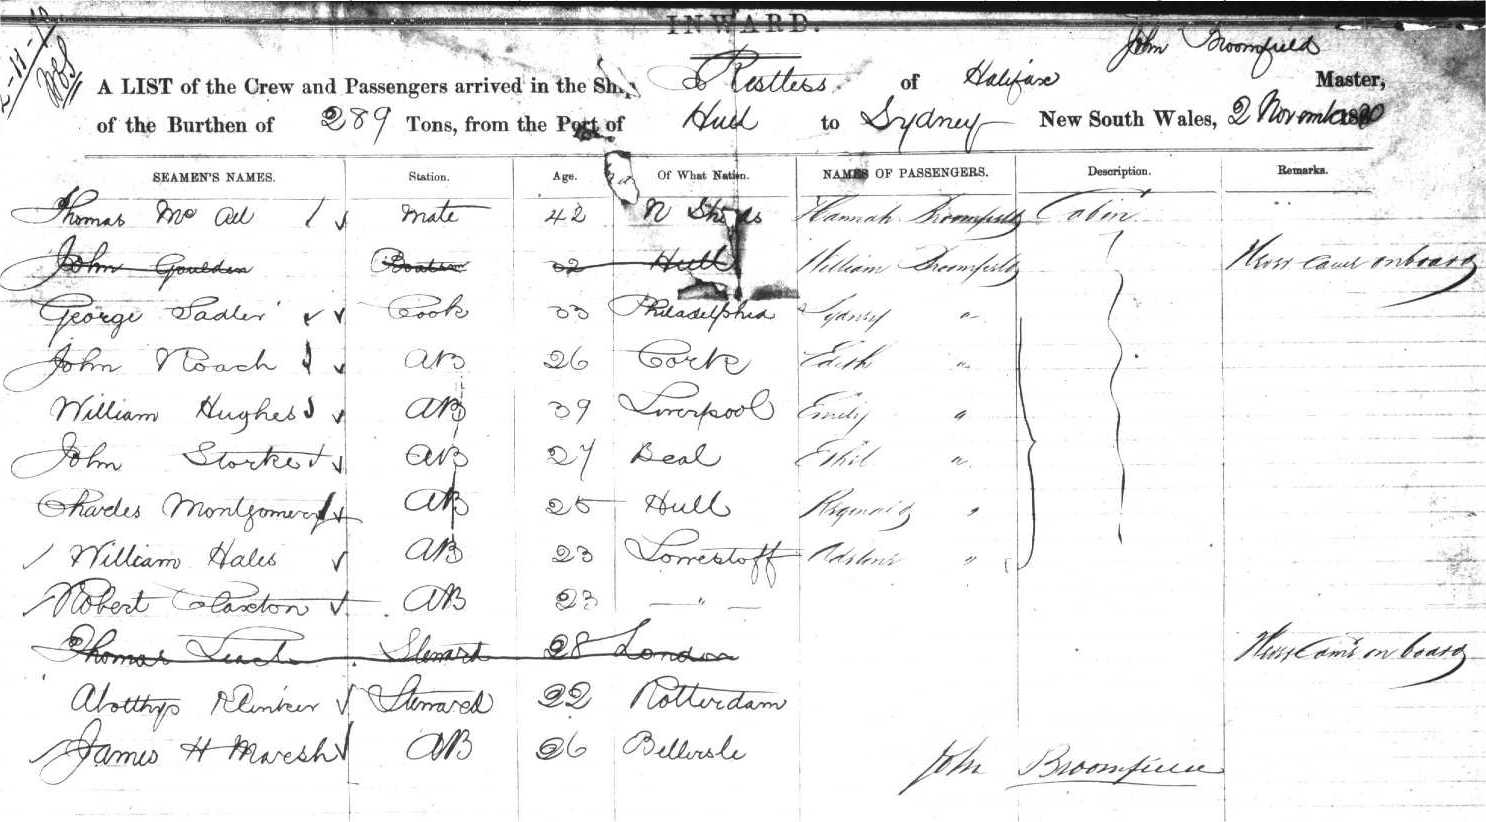 INWARD.
John Broomfield
A LIST of the Crew and Passengers arrived in the Ship Restless of Halifax Master,
of the Burthen of 289 Tons, from the Port of Hull to Sydney New South Wales, 2 November 1880
SEAMEN'S NAMES. Station. Age. Of What Nation. NAMES OF PASSENGERS. Description. Remarks.
Thomas Mate 42 N Shields Hannah Broomfield Cabin
John Goulden Hull William Broomfield Never came onboard
George Sadler Cook 33 Philadelphia Sydney "
John Roach AB 26 Cork Edith "
William Hughes AB 39 Liverpool Emily "
John Storker AB 27 Deal Ethel "
Charles Montgomery AB 25 Hull Reginald "
William Hales AB 23 Lowestoff "
Robert Claxton AB 23 — " —
Thomas Leach Steward 28 London Never came on board
Klinker Steward 22 Rotterdam
James H Marsh AB 26
John Broomfield